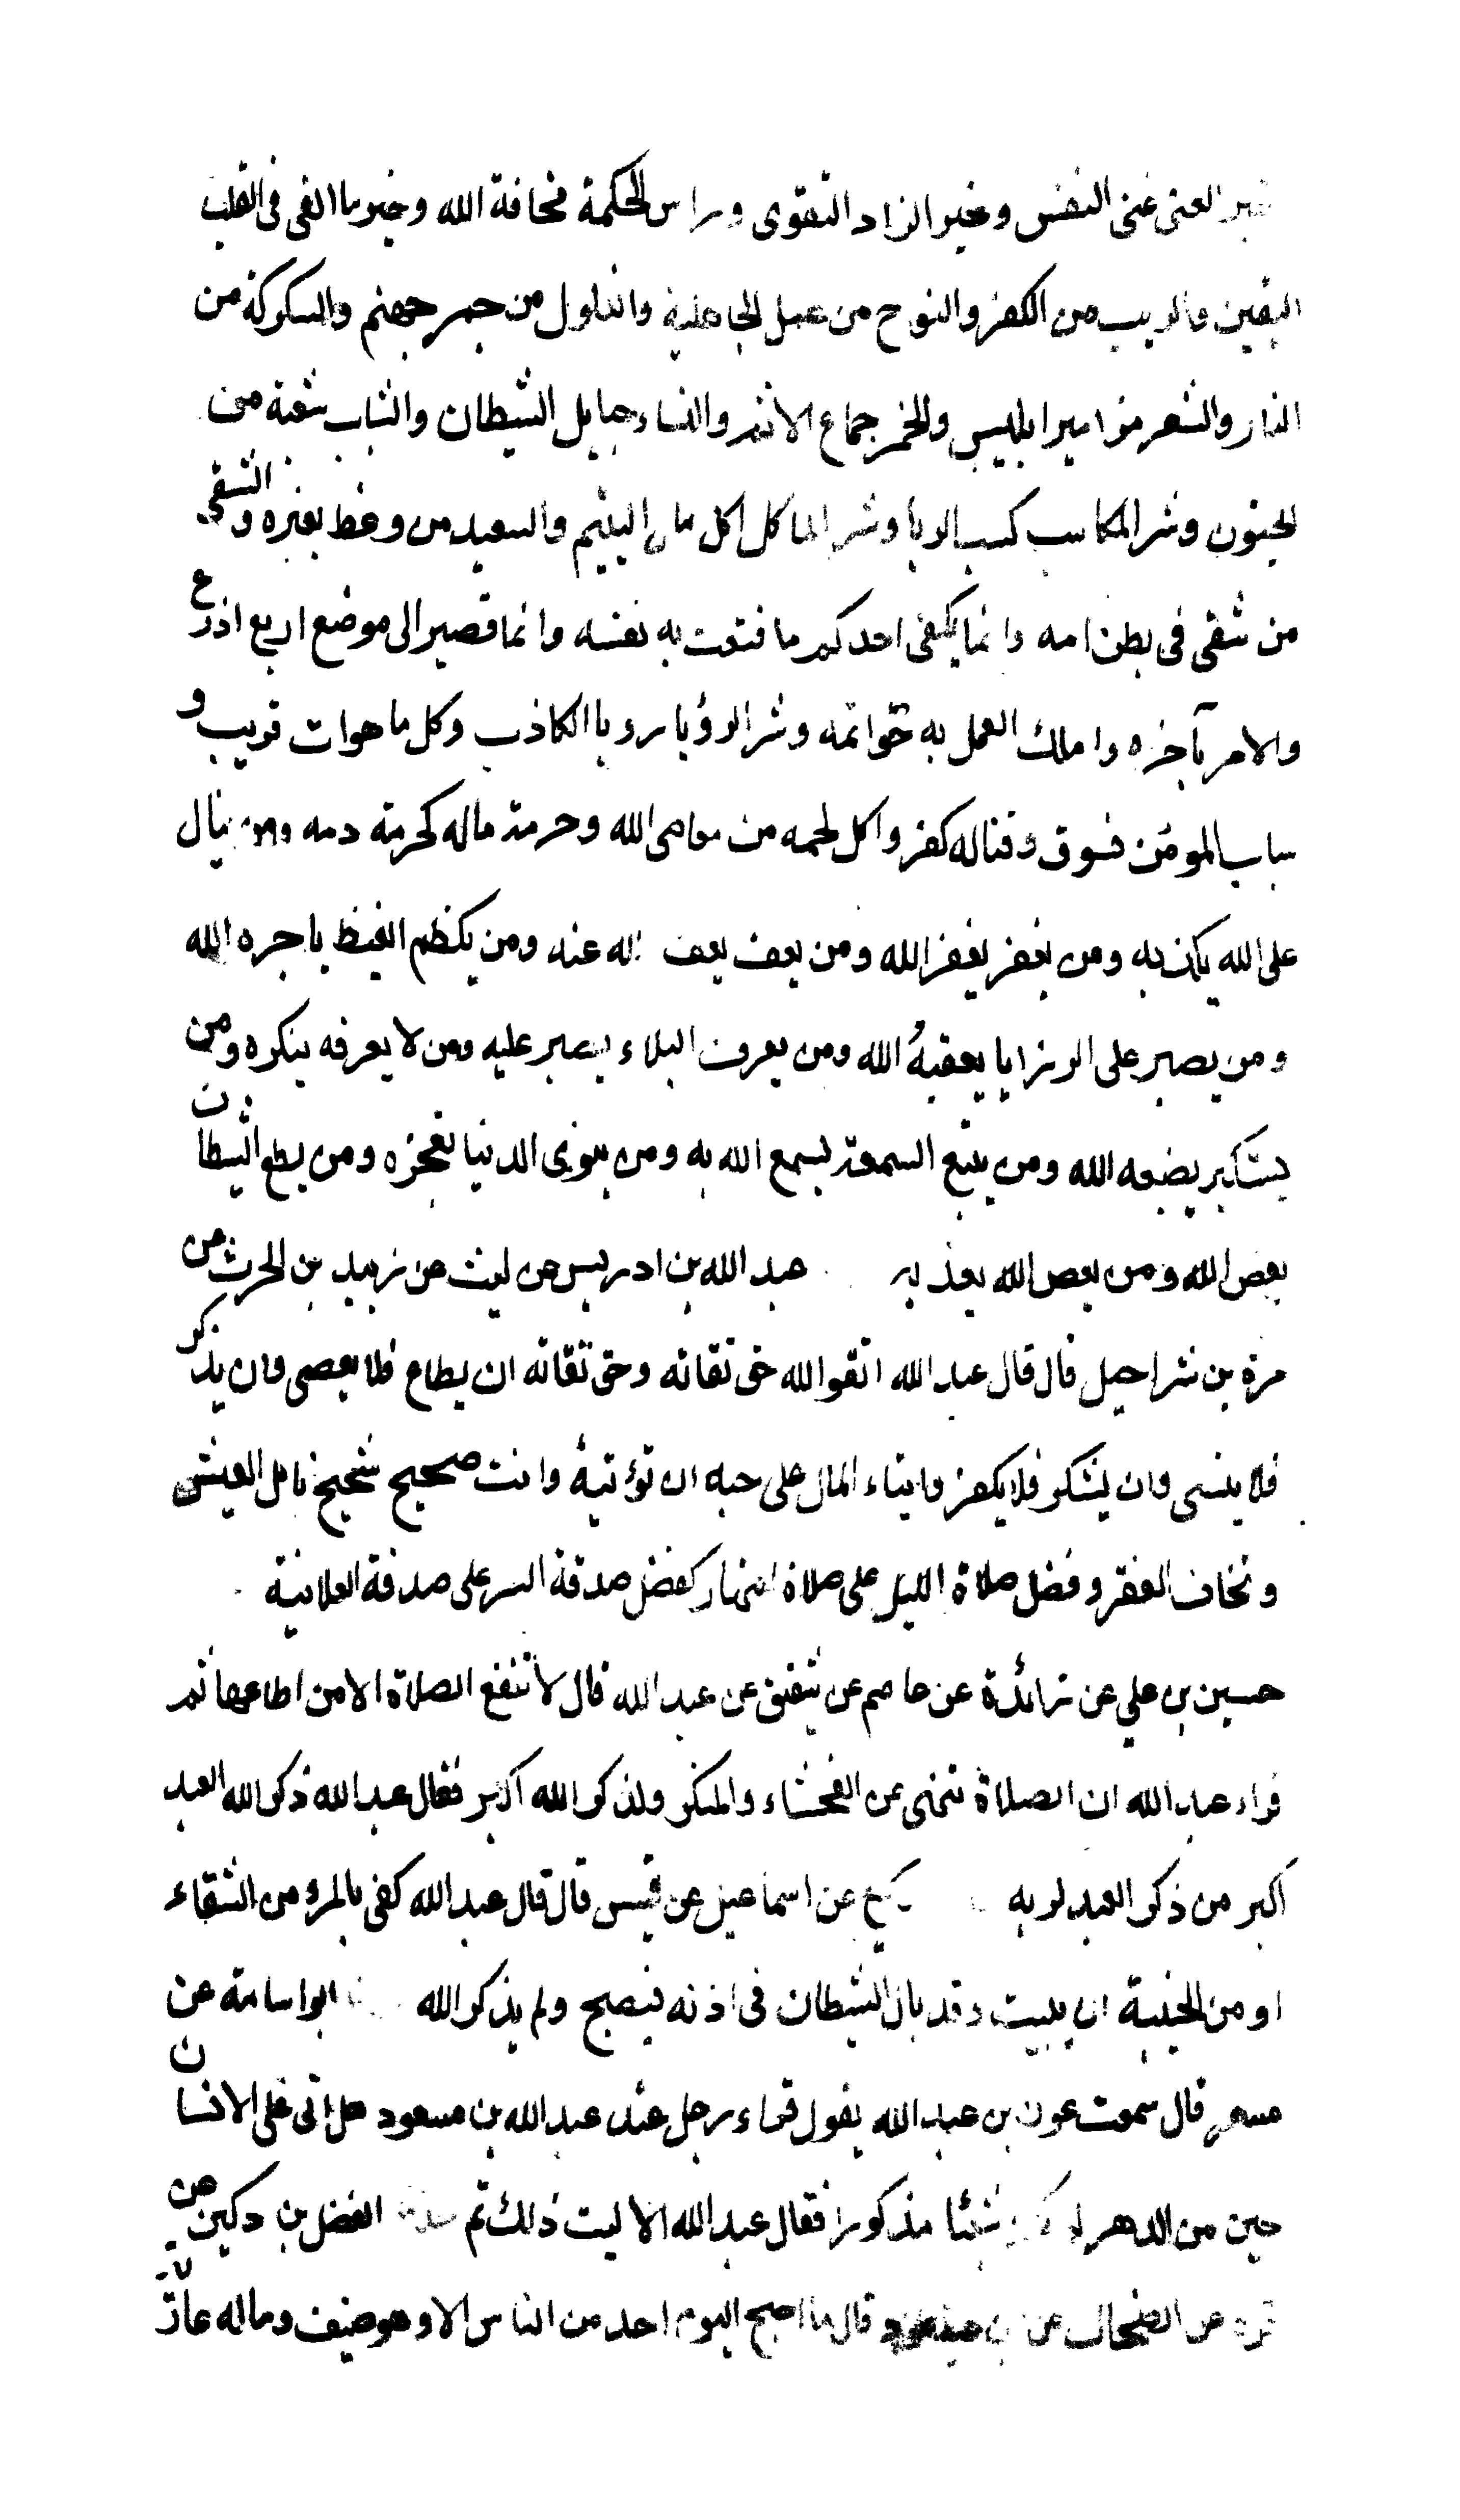 خير الغنى غنى النفس وخير الزاد التقوى وراس الحكمة مخافة الله وخير ما القي في القلب
اليقين والريب من الكفر والنوح من عمل الجاهلية والغلول من جمر جهنم والسكر كة من
النار والشعر مزامير ابليس والخمر جماع الاثم والنساء حبايل الشيطان والشباب شعبة من
الجنون وشر المكاسب كسب الربا وشر الماكل اكل مال اليتيم والسعيد من وعظ بغيره والشقي
من شقى في بطن امه وانما يكفى احدكم ما قنعت به نفسه وانما تصير الى موضع اربع اذرع
والامر بآخره واملك العمل به خواتمه وشر الرؤيا رويا الكاذب وكل ما هوات قريب و
سباب المومن فسوق وقتاله كفر واكل لحمه من معاصى الله وحرمة ماله كحرمة دمه ومن يتال
على الله يكذبه ومن يغفر يغفر الله ومن يعف يعف الله عنه ومن يكظم الغيظ ياجره الله
ومن يصبر على الرزايا يعقبهُ الله ومن يعرف البلاء يصبر عليه ومن لا يعرفه ينكره ومن
يستكبر يضعه الله ومن يتبع السمعة يسمع الله به ومن ينوى الدنيا تعجزه ومن يطع الشيطان
يعص الله ومن يعص الله يعذبه عبد الله بن ادريس عن ليث عن زبيد بن الحرث عن
مرة بن شراحيل قال قال عبد الله اتقوا الله حق تقاته وحق تقاته ان يطاع فلا يعصى وان يذكر
فلا ينسى وان يشكر فلا يكفر وايتاء المال على حبه ان تؤتيهُ وانت صحيح شحيح تامل العيش
وتخاف الفقر وفضل صلاة الليل على صلاة النهار كفضل صدقة السر على صدقة العلانية
حسين بن علي عن زائدة عن عاصم عن شقيق عن عبد الله قال لا تنفع الصلاة الا من اطاعها ثم
قراء عبد الله ان الصلاة تنهى عن الفحشاء والمنكر ولذكر الله اكبر فقال عبد الله ذكر الله العبد
اكبر من ذكر العبد لربه وكيع عن اسماعيل عن قيس قال قال عبد الله كفى بالمرؤ من الشقاء
او من الخيبة ان يبيت وقد بال الشيطان في اذنه فيصبح ولم يذكر الله ابو اسامة عن
مسعر قال سمعت عون بن عبد الله يقول قراء رجل عند عبد الله بن مسعود هل اتى على الانسان
حين من الدهر لم يكن شيئا مذكورا فقال عبد الله الا ليت ذلك تم الفضل بن دكين عن
قرة عن الضحاك عن قال ما اصبح اليوم احد من الناس الا وهو ضيف وماله عارية